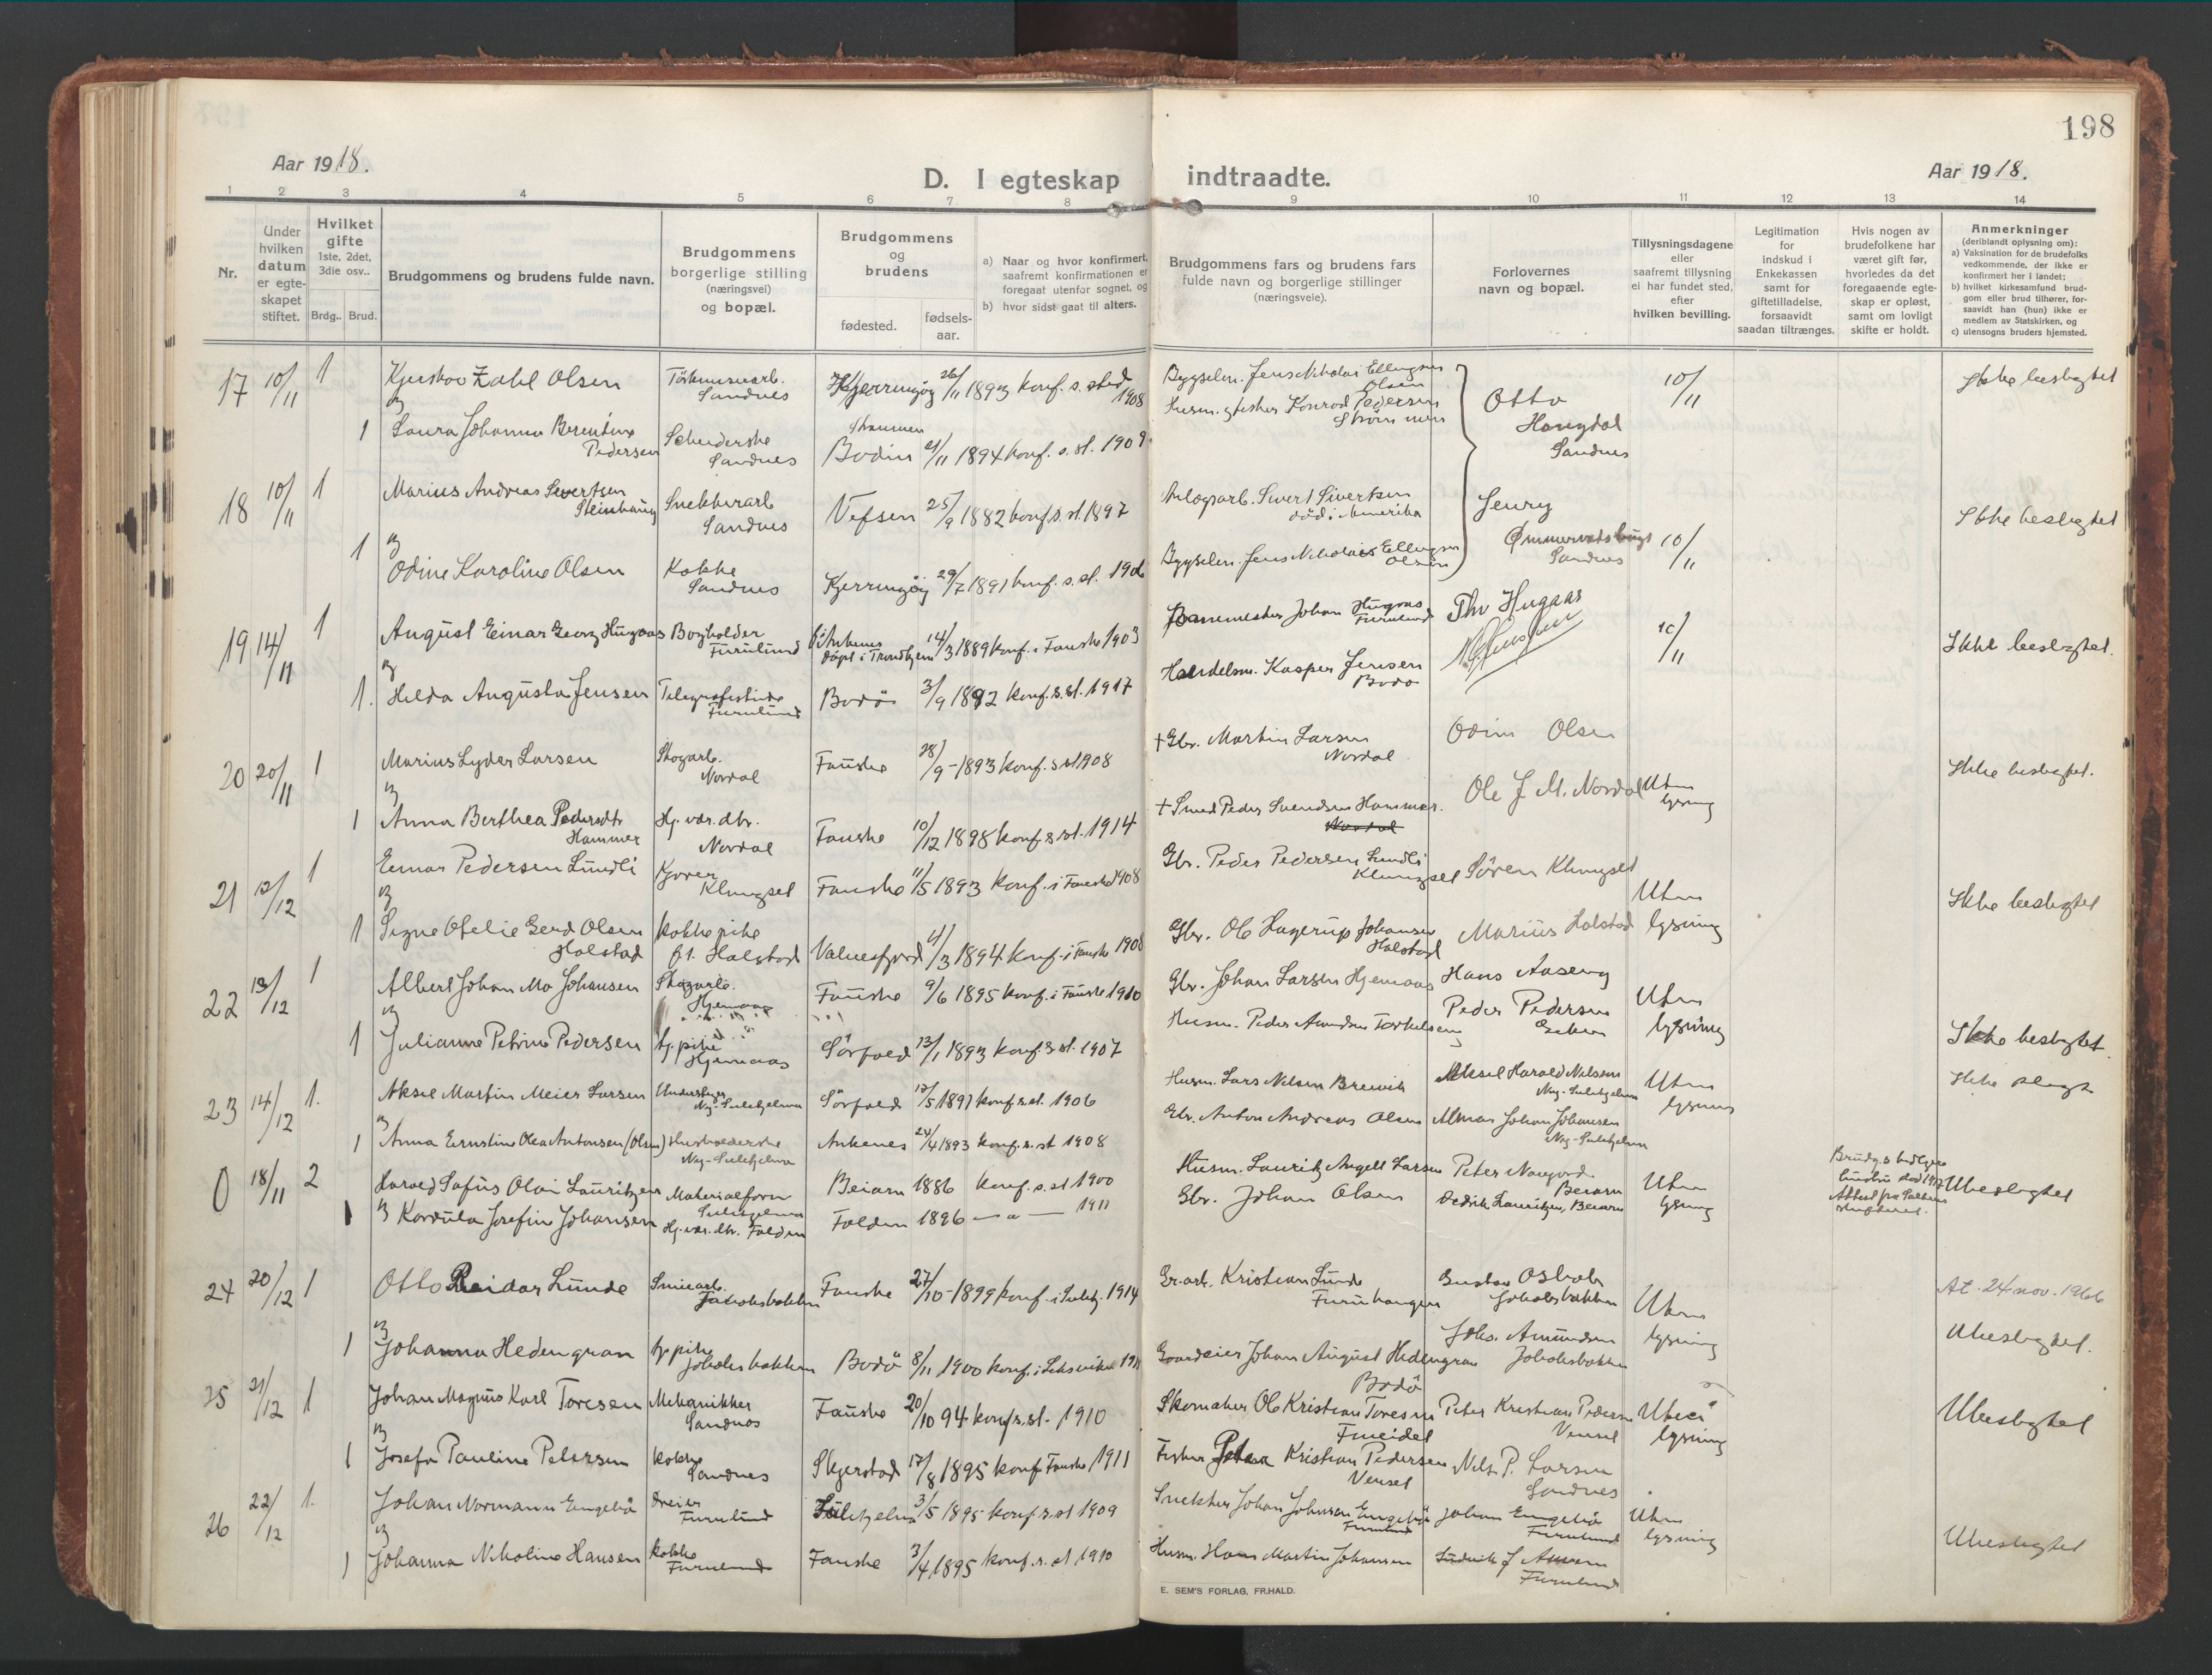 198
Aar 1918.
D. I egteskap indtraadte.
Aar 1918.
1 2 3 4 5 6 7 8 9 10 11 12 13 14
Nr.
Under
hvilken
datum
er egte-
skapet
stiftet.
Hvilket
gifte
1ste, 2det,
3die osv..
Brdg.. Brud.
Brudgommens og brudens fulde navn.
Brudgommens
borgerlige stilling
(næringsvei)
og bopæl.
Brudgommens
og
brudens
fødested.
fødsels-
aar.
a) Naar og hvor konfirmert,
saafremt konfirmationen er
foregaat utenfor sognet, og
b) hvor sidst gaat til alters.
Brudgommens fars og brudens fars
fulde navn og borgerlige stillinger
(næringsveie).
Forlovernes
navn og bopæl.
Tillysningsdagene
eller
saafremt tillysning
ei har fundet sted,
efter
hvilken bevilling.
Legitimation
for
indskud i
Enkekassen
samt for
giftetilladelse,
forsaavidt
saadan tiltrænges.
Hvis nogen av
brudefolkene har
været gift før,
hvorledes da det
foregaaende egte-
skap er opløst,
samt om lovligt
skifte er holdt.
Anmerkninger
(deriblandt oplysning om):
a) Vaksination for de brudefolks
vedkommende, der ikke er
konfirmert her i landet;
b) hvilket kirkesamfund brud-
gom eller brud tilhører, for-
saavidt han (hun) ikke er
medlem av Statskirken, og
c) utensogns bruders hjemsted.
17 10/11 1 Zahl Olsen Sandnes Kjerringøy 26/11 1893 konf. s. sted 1908 Bygselm. Jens Nikolai Ellingsen Olsen Otto 10/11 Ikke beslegtet
og
1 Laura Johanna Berentine Pedersen Sandnes Bodin 21/11 1894 konf. s. st. 1909 Konrad Pedersen Strømmen Sandnes
18 10/11 1 Marius Andreas Sivertsen Steinhaug Snekkerarb. Sandnes Vefsen 25/9 1882 konf. s. st. 1897 Sivert Sivertsen død i Amerika 10/11 Ikke beslegtet
og
1 Odine Karoline Olsen Kokke Sandnes Kjerringøy 29/7 1891 konf. s. st. 1906 Bygselm. Jens Nikolai Ellingsen Olsen Sandnes
19 14/11 1 August Einar Georg Hugaas Bogholder Furulund døpt i Trondhjem 14/3 1889 konf. i Fauske 1903 Banemester Johan Hugaas Furulund Thv Hugaas 10/11 Ikke beslegtet.
og
1. Helda Augusta Jensen Telegrafistinde Furulund Bodø 3/9 1892 konf. s. st. 1917 Handelsm. Kasper Jensen Bodø
20 20/11 1 Marius Lyder Larsen Skogarb. Nordal Fauske 28/9 - 1893 konf. s st 1908 † Gbr. Martin Larsen Nordal Odin Olsen Uten lysning Ikke beslegtet.
og
1 Anna Berthea Pedersdtr Hammer Hj. vær. dtr. Nordal Fauske 10/12 1898 konf. s. st. 1914 † Smed Peder Svendsen Hammer. Nordal Ole J. M. Nordal
21 12/12 1 Einar Pedersen Lundli Kjører Klungset Fauske 11/5 1893 konf. i Fauske 1908 Gbr. Peder Pedersen Lundli Klungset Søren Klungset Uten lysning Ikke beslegtet
og
1 Signe Ofelie Gerd Olsen Holstad Kokkepike Holstad Valnesfjord 4/3 1894 konf. i Fauske 1908 Gbr. Ole Hagerup Johansen Holstad Marius Holstad
22 13/12 1 Albert Johan Mo Johansen Skogarb. Hjemaas Fauske 9/6 1895 konf. i Fauske 1910 Gbr. Johan Larsen Hjemaas Hans Aaseng Uten lysning Ikke beslegtet.
og
1 Julianne Petrine Pedersen tj. pike Hjemaas Sørfold 13/1 1893 konf. s. st. 1907 Husm. Peder Amundsen Peder Pedersen
23 14/12 1. Aksel Martin Meier Larsen Ny-Sulitjelma Sørfold 17/5 1891 konf. s. st. 1906 Husm. Lars Nilsen Breivik Aksel Harald Nilssen Ny-Sulitjelma Uten lysning Ikke slegt
og
1 Anna Ernstine Olea Antonsen (Olsen) Husholderske Ny-Sulitjelma Ankenes 24/4 1893 konf. s. st 1908 Gbr. Anton Andreas Olsen Almar Johan Johansen Ny-Sulitjelma
0 18/11 2 Harald Sofus Olai Lauritzen Materialforv. Sulitjelma Beiarn 1886 konf. s. st 1900 Husm. Lauritz Angell Larsen Peter Beiarn Uten lysning Ubeslegtet
1 og Kordula Josefin Johansen Hj. vær. dtr. Folden Folden 1896 — " — 1911 Gbr. Johan Olsen Dedrik Lauritzen, Beiarn
24 20/12 1 Otto Reidar Lunde Jakobsbakken Fauske 27/10 - 1899 konf. i Sulitj. 1914 Kristian Lunde Furuhaugen Jakobsbakken Uten lysning At. 24 nov. 1966
og
1 Johanna Hedengran tj. pike Jakobsbakken Bodø 8/11 1900 konf. i Gaardeier Johan August Hedengran Bodø Johs. Amundsen Jakobsbakken Ubeslegtet.
25 21/12 1 Johan Magnus Karl Toresen Mekanikker Sandnes Fauske 20/10 94 konf. s. st. 1910 Skomaker Ole Kristian Toresen Fineidet Peter Kristian Pedersen Venset lysning Ubeslegtet
og
1 Josefa Pauline Petersen kokke Sandnes Skjerstad 17/8 1895 konf Fauske 1911 Fisker Peter Kristian Pedersen Venset Nils P. Larsen Sandnes
26 22/12 1. Johan Normann Engebø Dreier Furulund Sulitjelma 3/5 1895 konf. s. st 1909 Snekker Johan Johnsen Engebø Furulund Johan Engebø Furulund Uten lysning Ubeslegtet
og
1 Johanna Nikoline Hansen kokke Furulund Fauske 3/4 1895 konf. s. st 1910 Husm. Hans Martin Johansen Furulund
E. SEM'S FORLAG, FR.HALD.